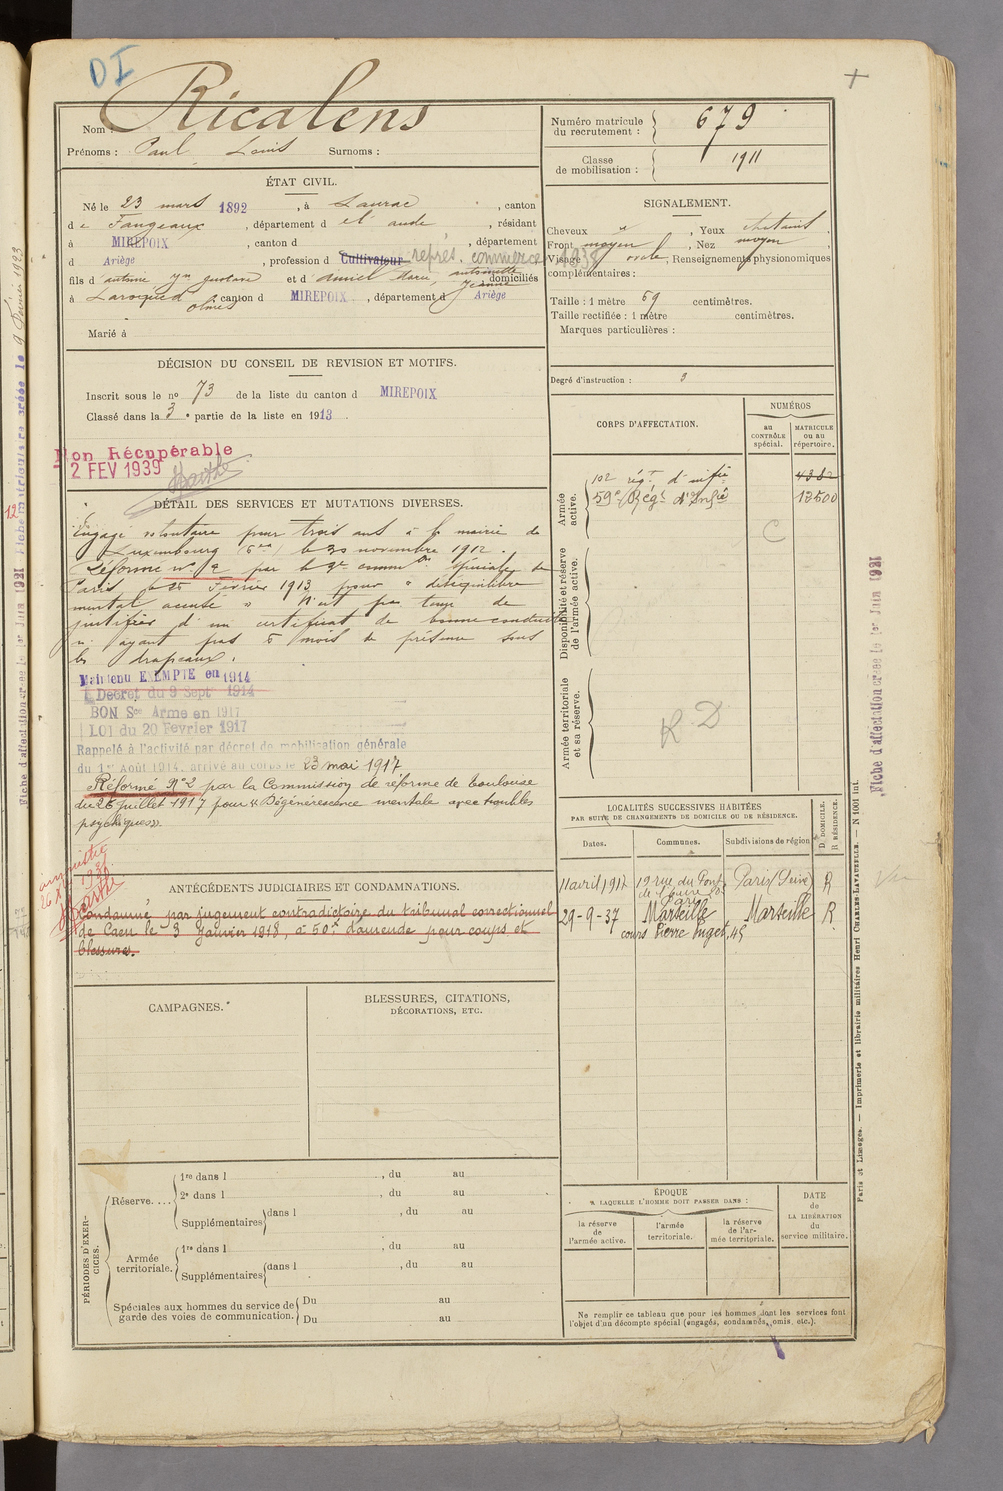 DI
+
Nom : Ricalens
Prénoms : Paul Louis Surnoms :
Numéro matricule du recrutement : 679
Classe de mobilisation : 1911
ÉTAT CIVIL.
Né le 23 mars 1892, à Laurac, canton
de Fangeaux, département d el aude, résidant
à MIREPOIX, canton d , département
d Ariège, profession d Cultivateur repres. commerce 1938
fils d antoine gustave et d Marie, antoinette Jeanne domiciliés
à Laroque d olmes, canton d MIREPOIX, département d Ariège
Marié à
SIGNALEMENT.
Cheveux , Yeux chatains
Front moyen , Nez moyen
Visage ovale, Renseignements physionomiques
complémentaires :
Taille : 1 mètre 69 centimètres.
Taille rectifiée : 1 mètre centimètres.
Marques particulières :
Degré d'instruction : 3
DÉCISION DU CONSEIL DE REVISION ET MOTIFS.
Inscrit sous le no 73 de la liste du canton d MIREPOIX
Classé dans la 3e partie de la liste en 1913.
Non Récupérable
2 FEV 1939
DÉTAIL DES SERVICES ET MUTATIONS DIVERSES.
Engagé volontaire pour trois ans à la mairie de
Luxembourg (6e) le 20 novembre 1912.
Réformé no 2 par la 2e common spéciale de
Paris le 25 Fevrier 1913 pour "déséquilibre
mental accusé" N'eut pas temps de
justifier d'un certificat de bonne conduite
n'ayant pas 6 mois de présence sous
les drapeaux.
Maintenu EXEMPTE en 1914
Décret du 9 Sept 1914
BON Sce Armé en 1917
LOI du 20 Fevrier 1917
Rappelé à l'activité par décret de mobilisation générale
du 1er Août 1914, arrivé au corps le 23 mai 1917
Réformé No 2 par la Commission de réforme de Toulouse
du 26 juillet 1917 pour "Dégénérescence mentale avec troubles
psychiques".
CORPS D'AFFECTATION.
NUMÉROS
au CONTRÔLE spécial.
MATRICULE ou au répertoire.
Armée active.
102 régt. d'infie 4382
59e Régt d'Infie 13500
C
Disponibilité et réserve de l'armée active.
Armée territoriale et sa réserve.
R. D.
LOCALITÉS SUCCESSIVES HABITÉES
PAR SUITE DE CHANGEMENTS DE DOMICILE OU DE RÉSIDENCE.
Dates. Communes. Subdivisions de région D. DOMICILE. R. RÉSIDENCE.
11 avril 1917 19 rue du Pont Paris (Seine) R
Paris
29-9-37 Marseille Marseille R
cours Pierre Puget, 45
amnistié
1921
ANTÉCÉDENTS JUDICIAIRES ET CONDAMNATIONS.
Condamné par jugement contradictoire du tribunal correctionnel
de Caen le 3 janvier 1918, à 50f d'amende pour coups et
blessures.
CAMPAGNES.
BLESSURES, CITATIONS,
DÉCORATIONS, ETC.
PÉRIODES D'EXERCICES.
Réserve....
1re dans l , du au
2e dans l , du au
Supplémentaires dans l , du au
Armée territoriale.
1re dans l , du au
Supplémentaires dans l , du au
Spéciales aux hommes du service de garde des voies de communication.
Du au
Du au
ÉPOQUE
A LAQUELLE L'HOMME DOIT PASSER DANS :
la réserve de l'armée active.
l'armée territoriale.
la réserve de l'armée territoriale.
DATE de LA LIBÉRATION du service militaire.
Ne remplir ce tableau que pour les hommes dont les services font
l'objet d'un décompte spécial (engagés, condamnés, omis, etc.).
Paris et Limoges. — Imprimerie et librairie militaires Henri CHARLES-LAVAUZELLE. — N 1001 int.
Fiche d'affectation créée le 1er Juin 1921
Fiche d'affectation créée le 1er Juin 1921